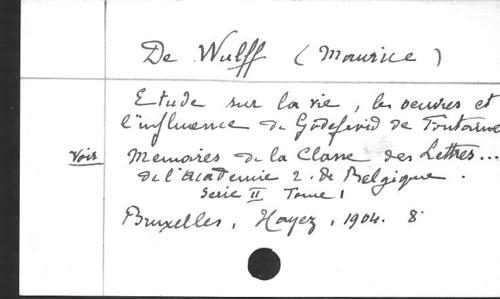 De Wulff (Maurice)
Etude sur la vie, les oeuvres et
l'influence de Godefroid de Fontaine
Voir Memoires de la Classe des Lettres...
de l'Academie R. de Belgique.
Serie II Tome 1
Bruxelles, Hayez, 1904. 8°